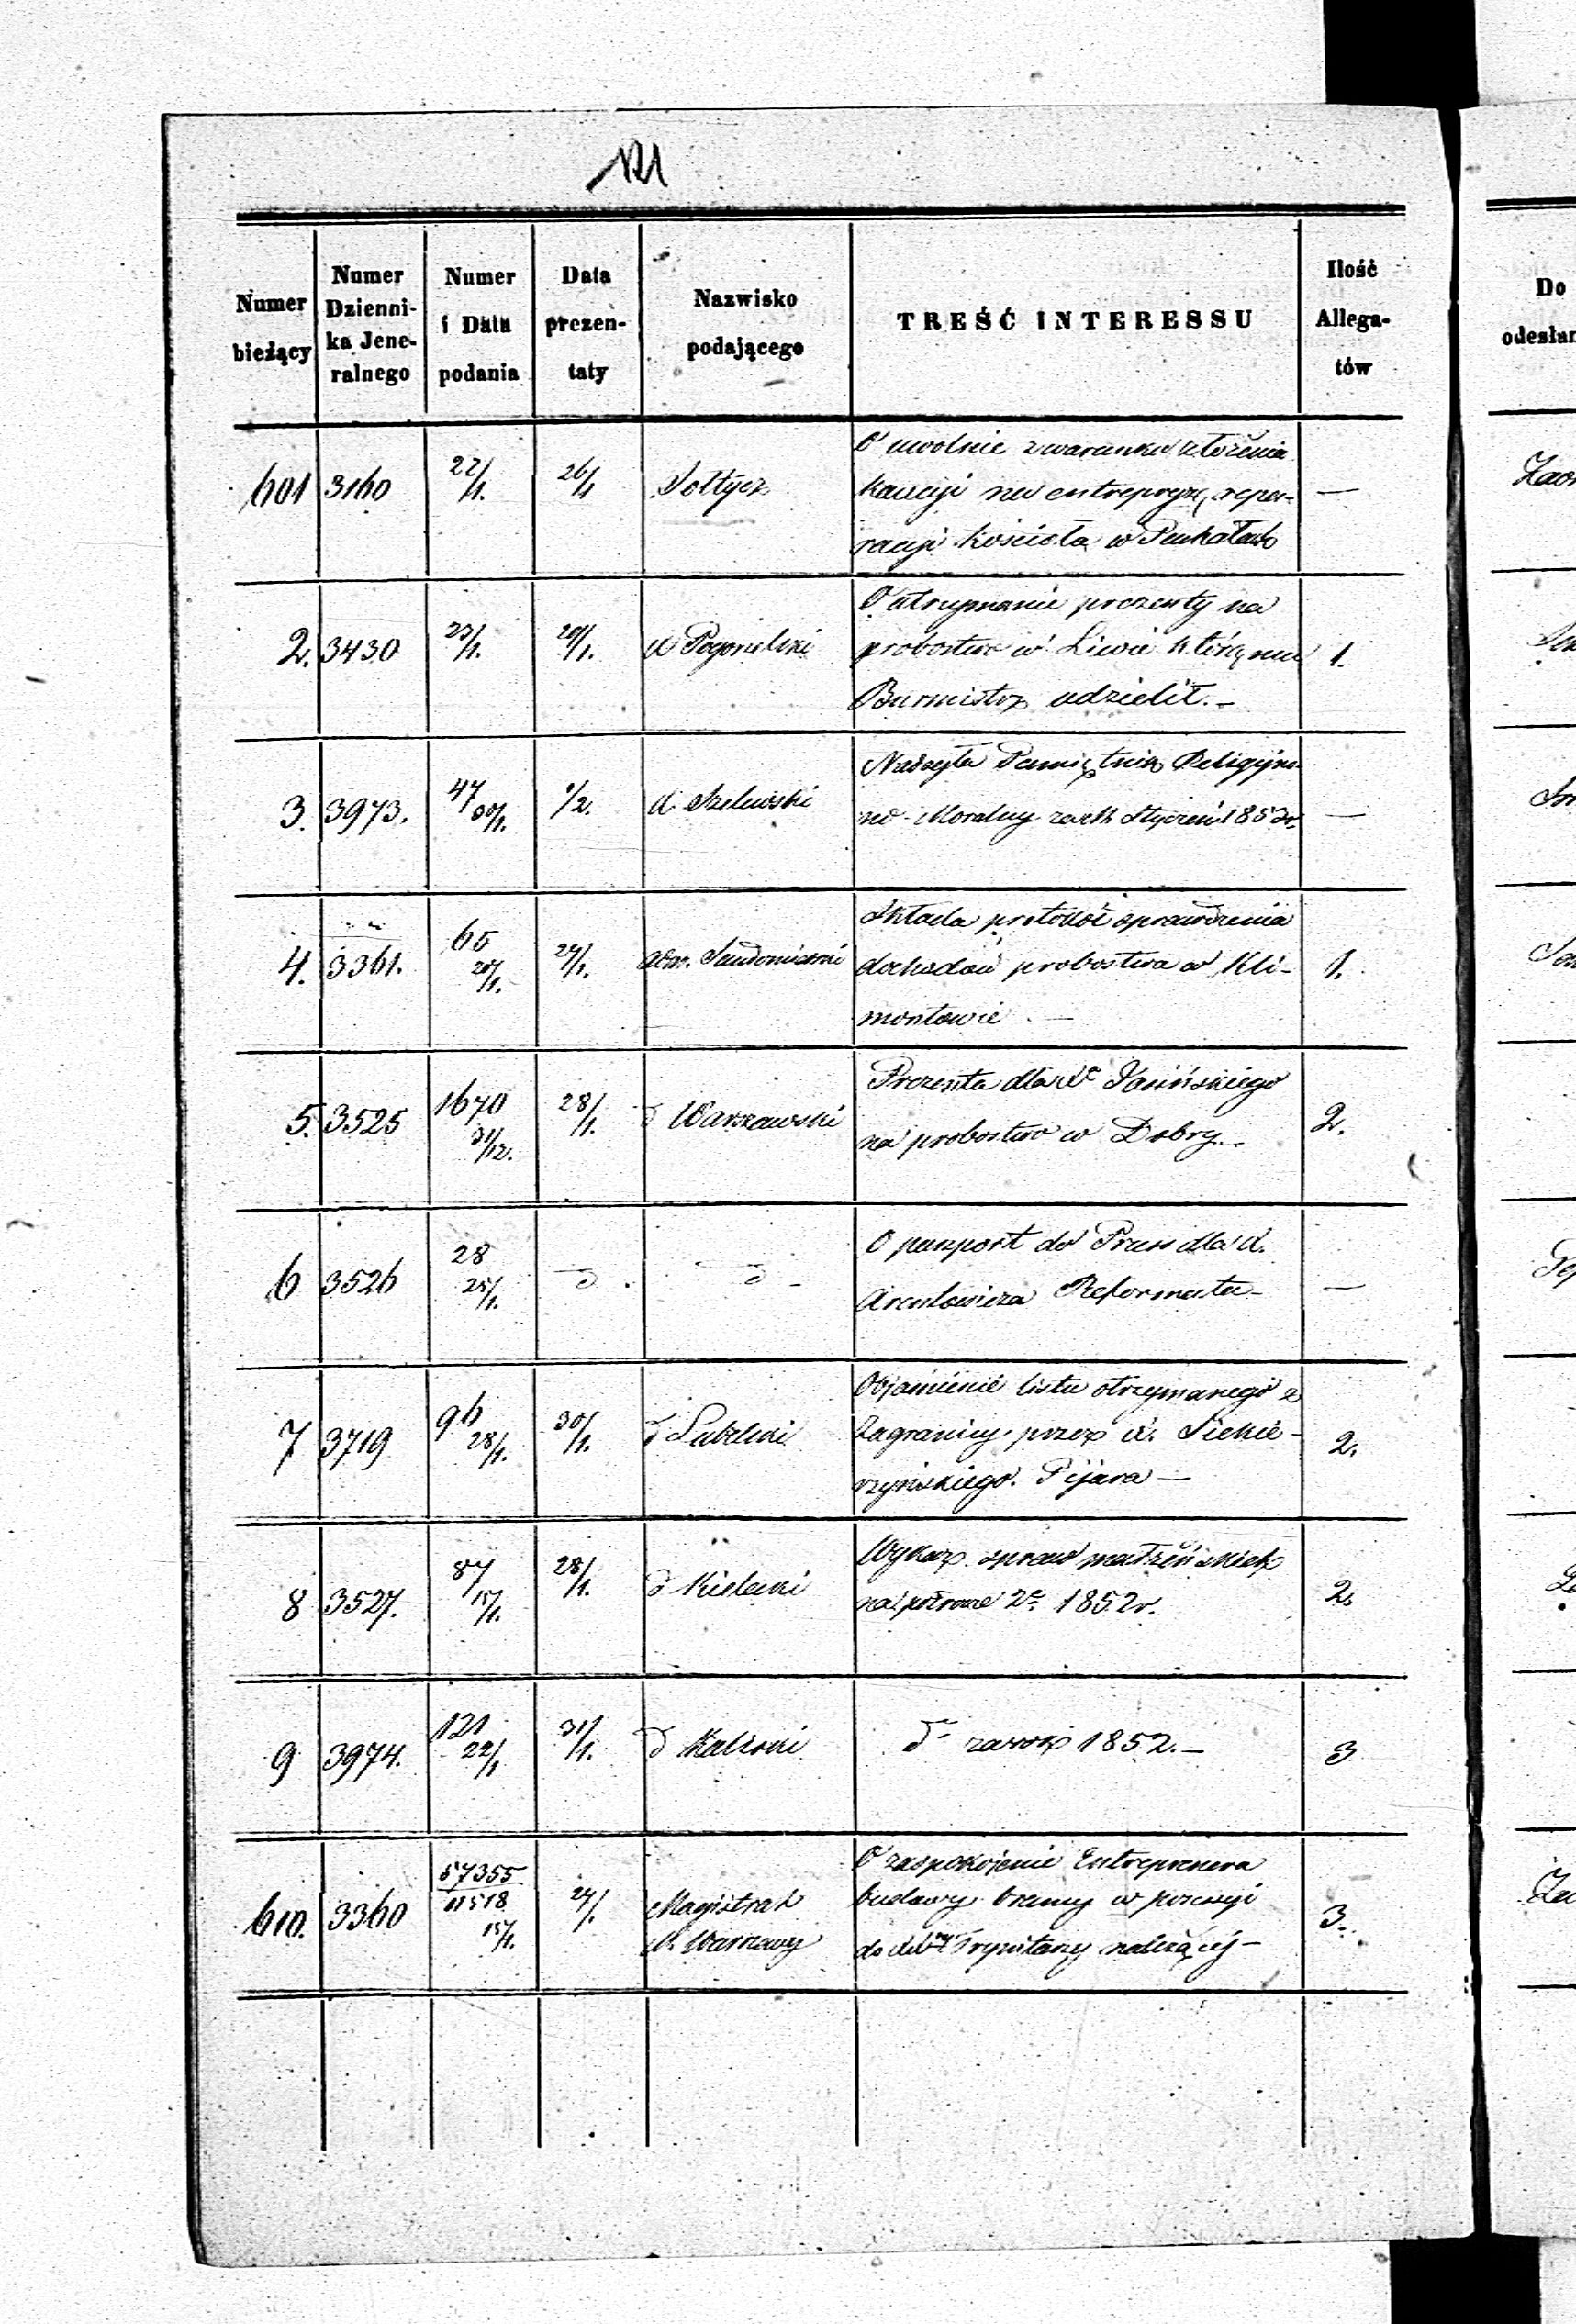 121
Numer bieżący
Numer Dzienni- ka Jene- ralnego
Numer i Data podania
Data prezen- taty
Nazwisko podającego
TREŚĆ INTERESSU
Ilość Allega- tów
Do
odesłan
601 3160 22/1. 26/1 Sołtycz O uwolnie z warunku złożenia
kaucyi na entrepryzę repa- —
racyi kościoła w
2. 3430 23/1. X Pogorzelski O utrzymanie prezenty na
probostwo w Liwie którą mu 1.
Burmistrz udzielił. —
3. 3973. 47 30/1. 1/2. X. Szelewski Nadsyła Pamiętnik Religijno
no-Moralny za Styczeń 1853 r. —
4. 3361. 65 27/1. Adm. Sandomierski Składa protokół sprawdzenia
dochodów probostwa w Kli- 1.
montowie —
5. 3525 1670 31/12. 28/1. d Warszawski Prezenta dla X Jasińskiego
na probostwo w Dobry — 2.
6 3526 28 25/1. d d — O paszport do Pruss dla X.
Reformata — —
7 3719 96 28/1. 30/1. d Lubelski Objaśnienie listu otrzymanego z
Zagranicy przez X. Siekie- 2.
rzyńskiego Pijara —
8 3527. 87 15/1. 28/1. d Kielecki Wykaz spraw małżeńskich
na półrocze 2e 1852 r. 2.
9 3974. 121 22/1 31/1. d Kaliski d — za rok 1852. — 3
610. 3360 57355 11518 15/1. 24/. Magistrat M. Warszawy O zaspokojenie Entreprenera
budowy bramy w possesyi
do Trynitarzy należącej — 3.